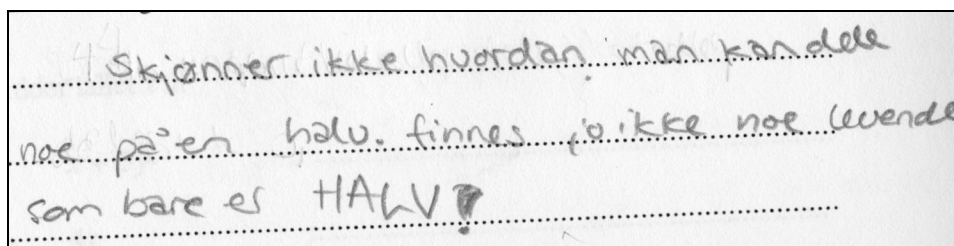 Skjønner ikke hvordan man kan dele
noe på en halv. finnes jo ikke noe levende
som bare er HALV?